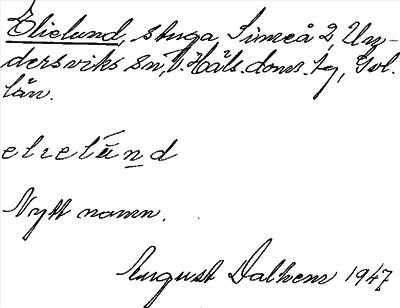 Elielund, stuga, Simeå 2, Un-
dersviks sn, V. Häls. doms. tg, Gvl.
län.
elielūnd
Nytt namn.
August Dalhem 1947